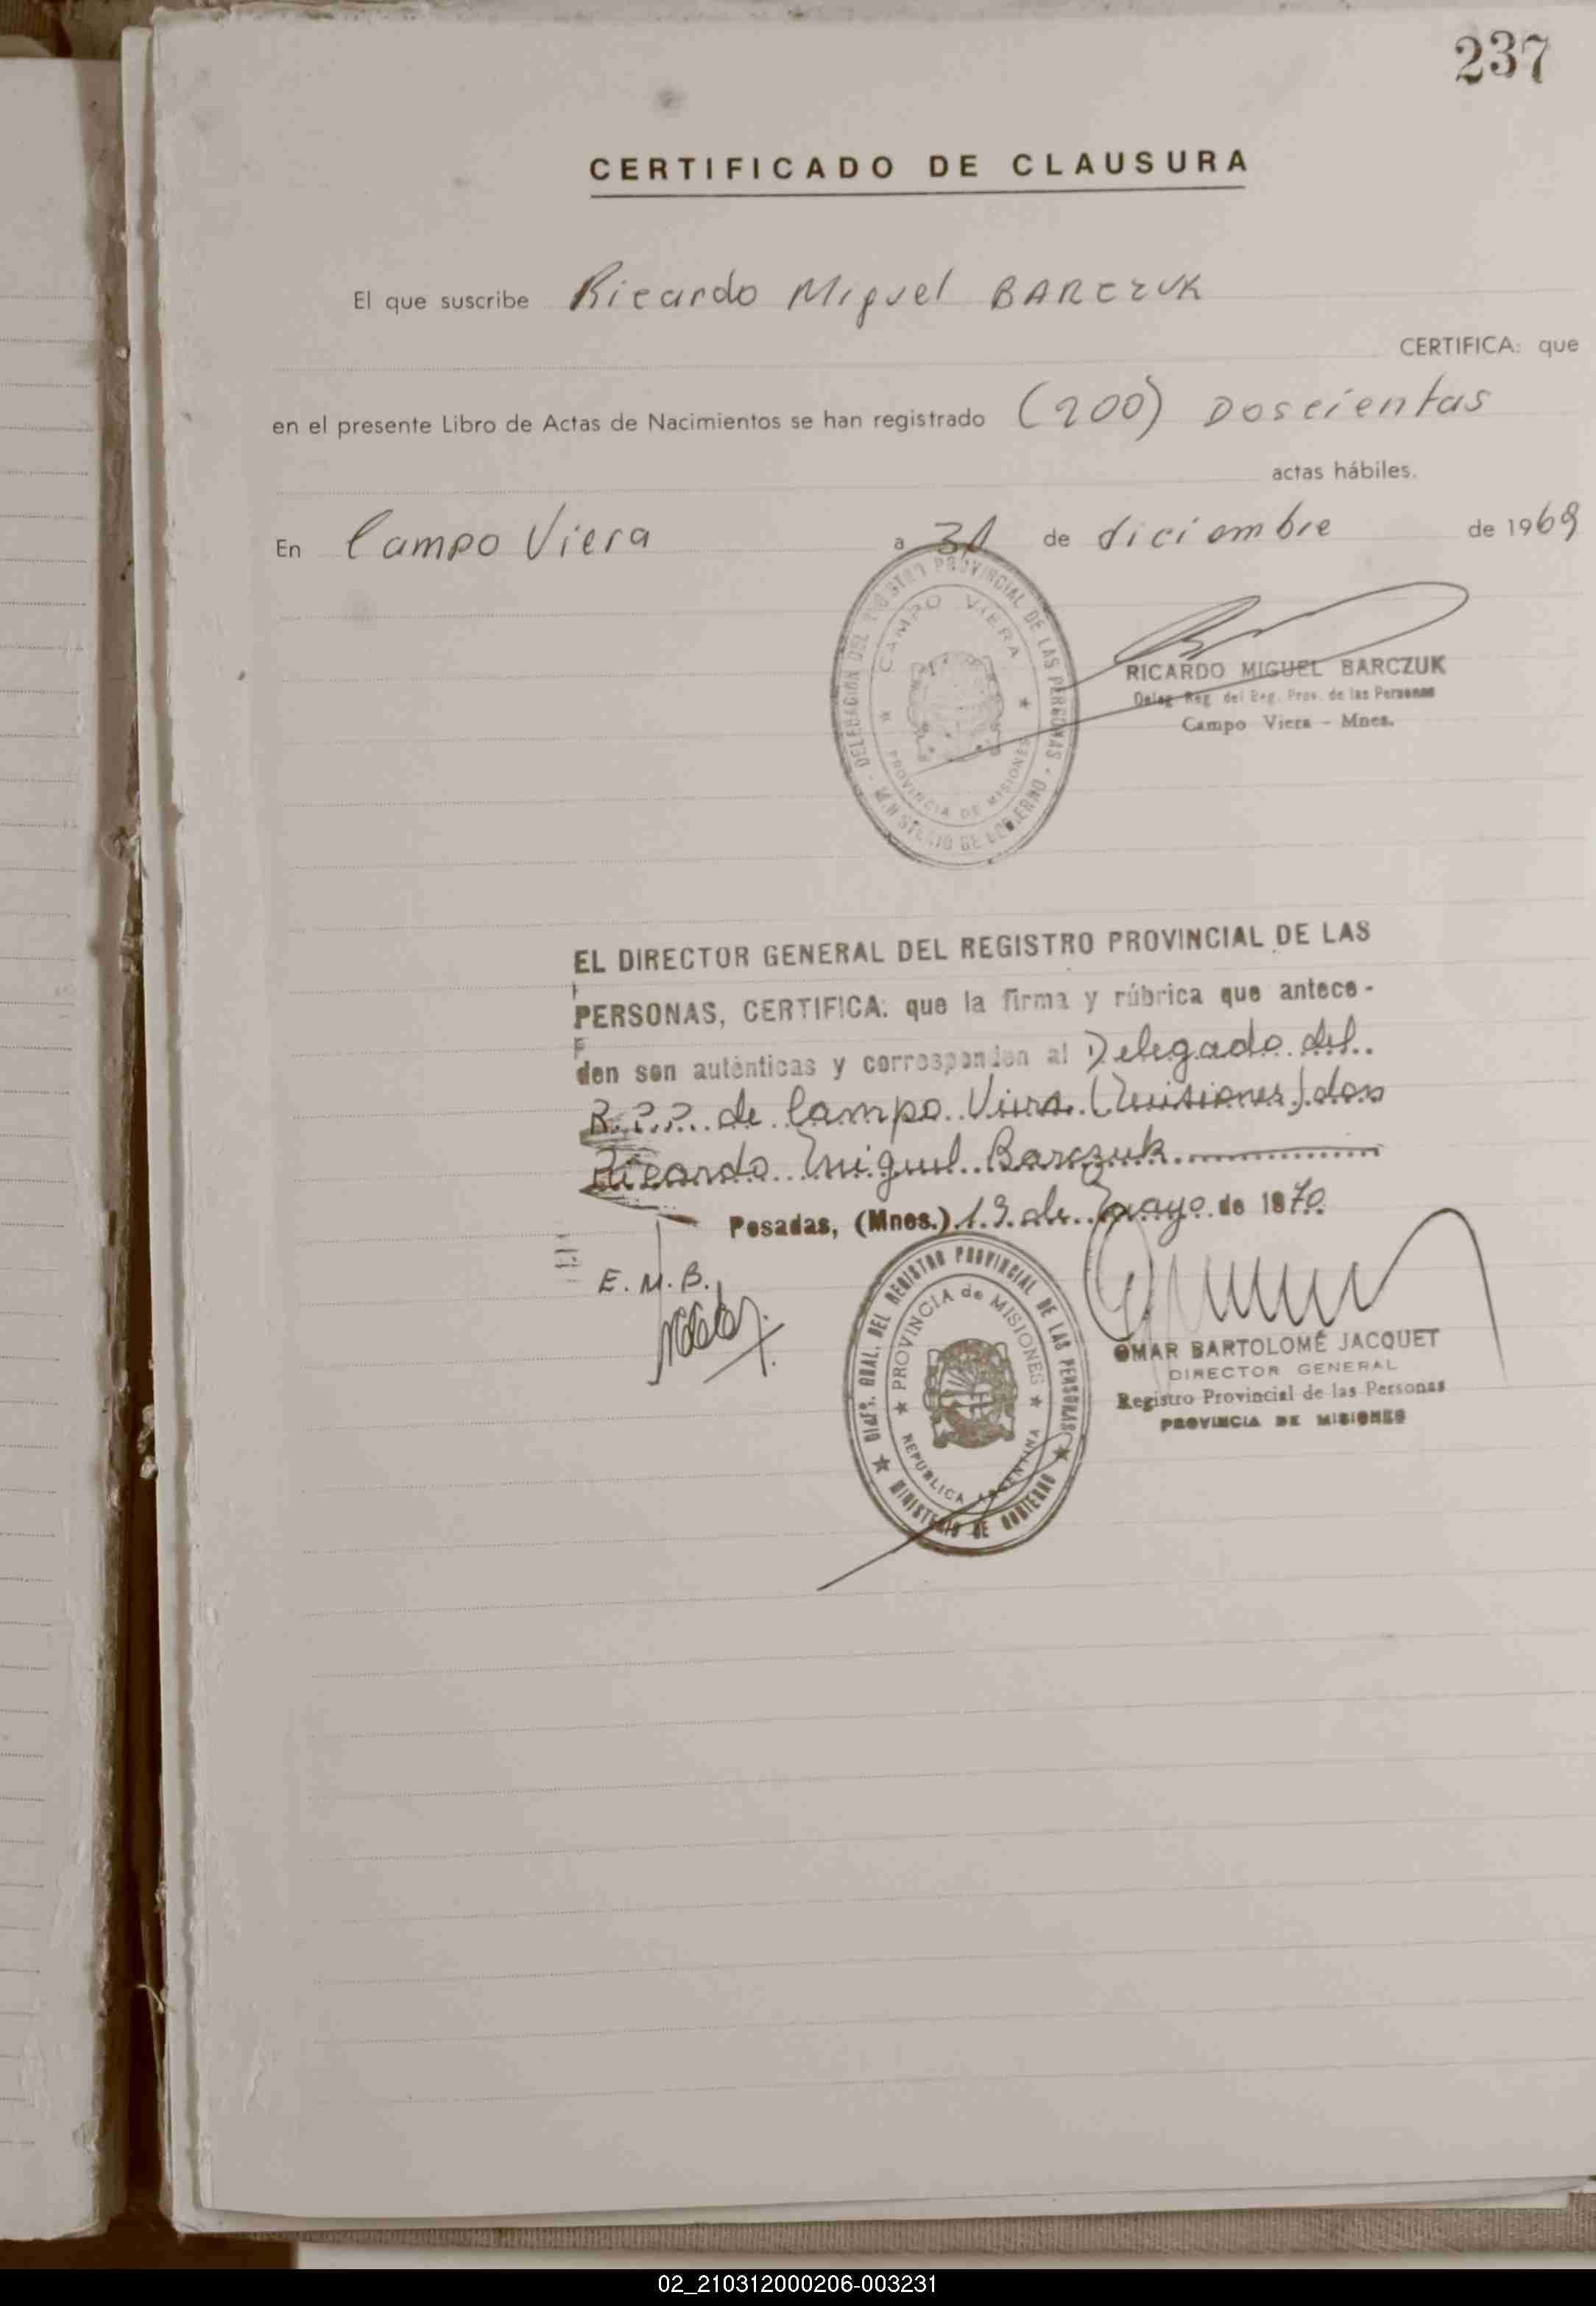 237
CERTIFICADO DE CLAUSURA
El que suscribe Ricardo Miguel BARCZUK
CERTIFICA: que
en el presente Libro de Actas de Nacimientos se han registrado (200) Doscientas
actas hábiles.
En Campo Viera a 31 de diciembre de 1969
DELEGACION DEL REGISTRO PROVINCIAL DE LAS PERSONAS - MINISTERIO DE GOBIERNO -
CAMPO VIERA
PROVINCIA DE MISIONES
RICARDO MIGUEL BARCZUK
Deleg. Reg. del Reg. Prov. de las Personas
Campo Viera - Mnes.
EL DIRECTOR GENERAL DEL REGISTRO PROVINCIAL DE LAS
PERSONAS, CERTIFICA: que la firma y rúbrica que antece-
den son auténticas y corresponden al Delegado del
R.P.P. de Campo Viera (Misiones) don
Ricardo Miguel Barczuk
Posadas, (Mnes.) 13 de Mayo de 1970
E.M.B.
DIREC. GRAL. DEL REGISTRO PROVINCIAL DE LAS PERSONAS
MINISTERIO DE GOBIERNO
PROVINCIA de MISIONES
REPUBLICA ARGENTINA
OMAR BARTOLOMÉ JACQUET
DIRECTOR GENERAL
Registro Provincial de las Personas
PROVINCIA DE MISIONES
02_210312000206-003231